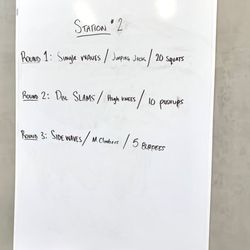 STATION #2
ROUND 1: SINGLE WAVES / Jumping Jacks / 20 Squats
ROUND 2: DBL SLAMS / High knees / 10 pushups
ROUND 3: SIDE WAVES / M. Climbers / 5 BURPEES